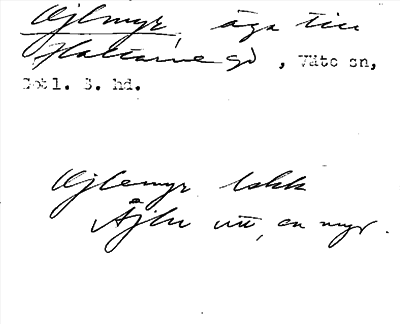 Öjlmyr, äga till
Hallarve gd, Väte sn,
Gotl. S. hd.
Öjlemyr lskk
Åjlu utt, en myr.